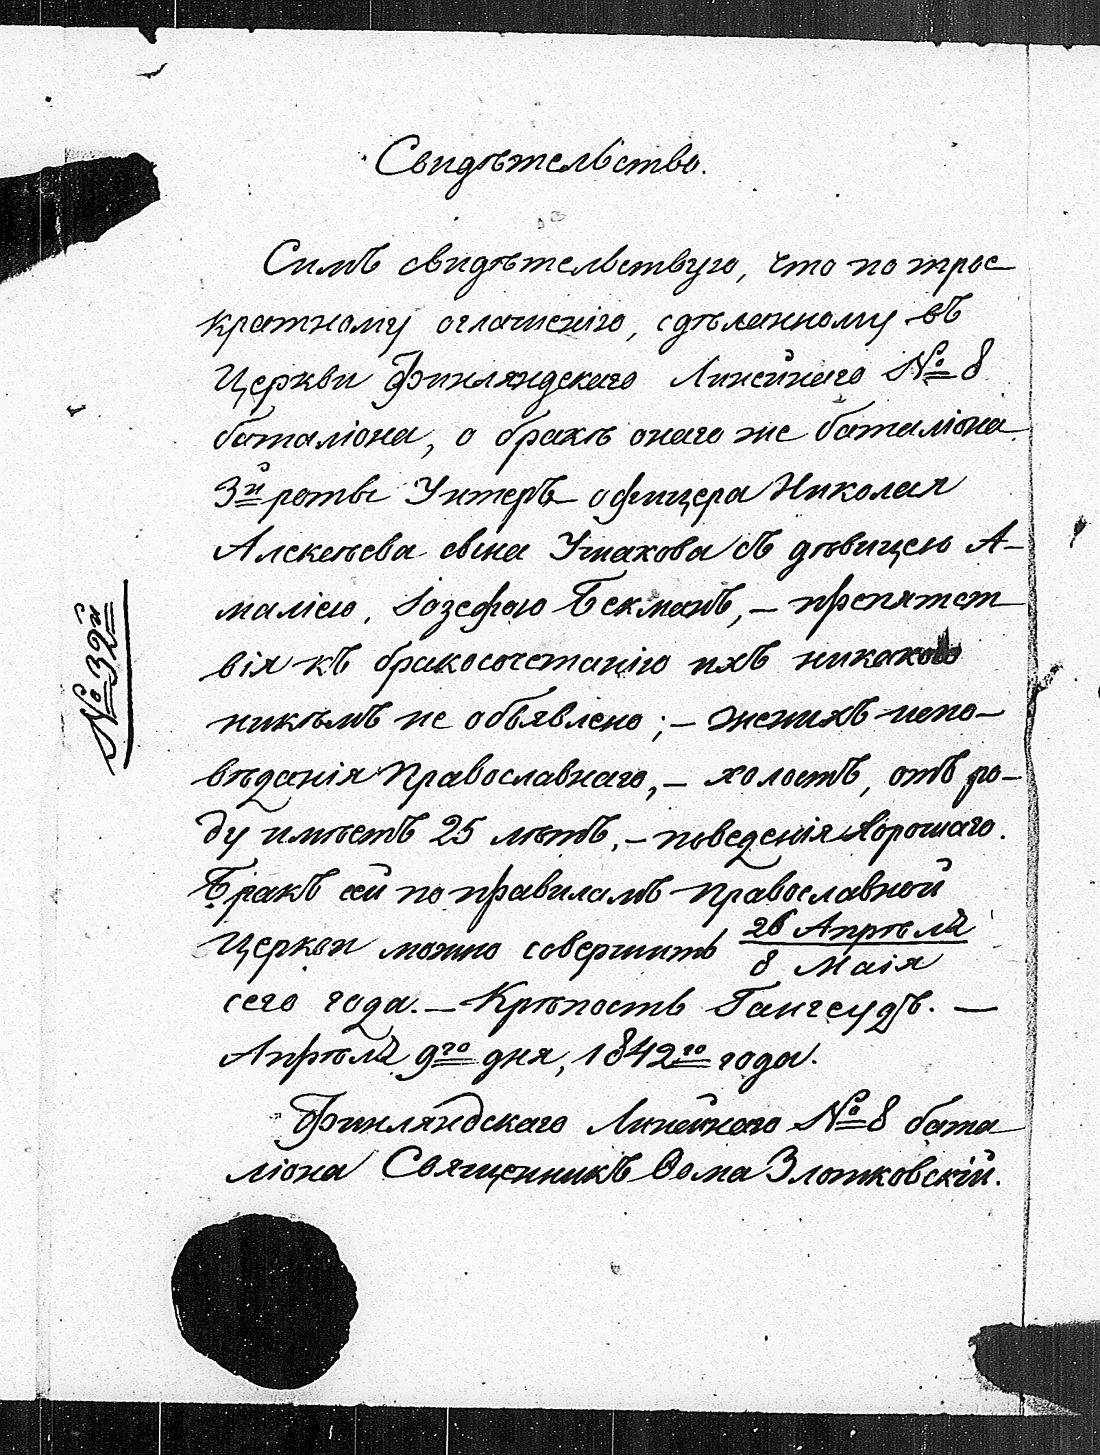 Свидѣтельство.
Симъ свидѣтельствую, что по трое
кратному оглашенію, сдѣланному въ
Церкви Финляндскаго Линейнаго № 8
баталіона, о бракѣ онаго же баталіона
3й роты Унтеръ-офицера Николая
Алексѣева сына Ушакова съ дѣвицею А-
маліею, Іозефою Бекманъ, – препятст
вія къ бракосочетанію ихъ никакого
никѣмъ не объявлено; – женихъ испо-
вѣданія Православнаго, – холостъ, отъ ро-
ду имѣетъ 25 лѣтъ, – поведенія хорошаго.
Бракъ сей по правиламъ православной
Церкви можно совершить 26 Апрѣля
8 Маія
сего года. – Крѣпость Гангеудъ. –
Апрѣля 9го дня, 1842го года.
Финляндскаго Линейнаго № 8 бата
ліона Священникъ Ѳома Злотковскій.
№ 39й